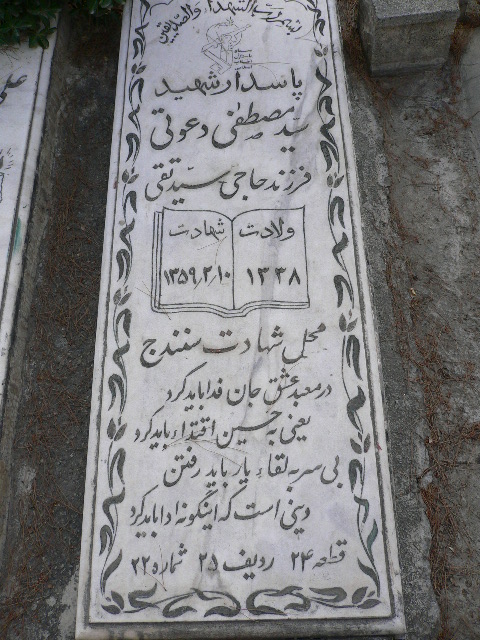 بسم رب الشهداء والصدیقین
پاسدار شهید
سید مصطفی دعوتی
فرزند حاجی سید تقی
ولادت شهادت
۱۳۳۸ ۱۳۵۹/۲/۱۰
محل شهادت سنندج
در معبد عشق جان فدا باید کرد
یعنی به حسین اقتداء باید کرد
بی سر به لقاء یار باید رفتن
دینی است که اینگونه ادا باید کرد
قطعه ۲۴ ردیف ۲۵ شماره ۲۲